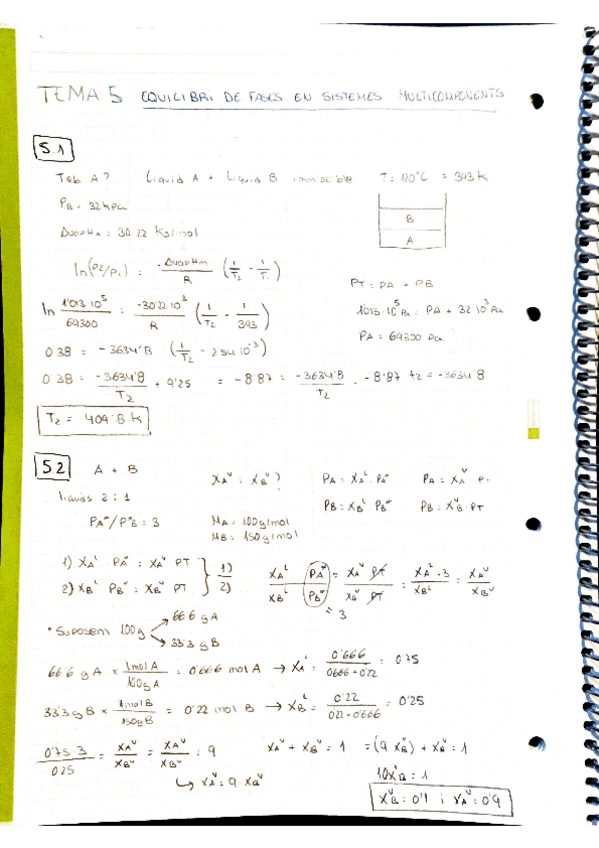 TEMA 5 EQUILIBRI DE FASES EN SISTEMES MULTICOMPONENTS
5.1
Teb A? Líquid A + Líquid B immiscible T = 120°C = 393 K
PB = 32 kPa
ΔvapHA = 30'22 KJ/mol
B
A
ln(P2/P1) = -ΔvapHm/R (1/T2 - 1/T1)
PT = PA + PB
ln 1'013·10^5/69300 = -30'22·10^3/R (1/T2 - 1/393)
1'013·10^5 Pa = PA + 32·10^3 Pa
PA = 69300 Pa
0'38 = -3634'8 (1/T2 - 2'54·10^-3)
0'38 = -3634'8/T2 + 9'25 = -8'87 = -3634'8/T2 = -8'87 T2 = -3634'8
T2 = 409'8 K
5.2 A + B XA^V i XB^V ? PA = XA^L · PA* PA = XA^V PT
líquids 2:1 PB = XB^L PB* PB = XB^V · PT
PA*/P*B = 3 MA = 100g/mol
MB = 150g/mol
1) XA^L · PA* = XA^V PT 1)
2) XB^L PB* = XB^V PT 2)
XA^L/XB^L PA*/PB* = XA^V PT/XB^V PT = XA^L · 3/XB^L = XA^V/XB^V
= 3
• Suposem 100g
66'6 g A
33'3 g B
66'6 g A × 1mol A/100g A = 0'666 mol A → XA^L = 0'666/0'666 + 0'22 = 0'75
33'3 g B × 1mol B/150g B = 0'22 mol B → XB^L = 0'22/0'22 + 0'666 = 0'25
0'75 · 3/0'25 = XA^V/XB^V = XA^V/XB^V = 9 XA^V + XB^V = 1 = (9 XB^V) + XB^V = 1
↳ XA^V = 9 XB^V 10XB^V = 1
XB^V = 0'1 i XA^V = 0'9